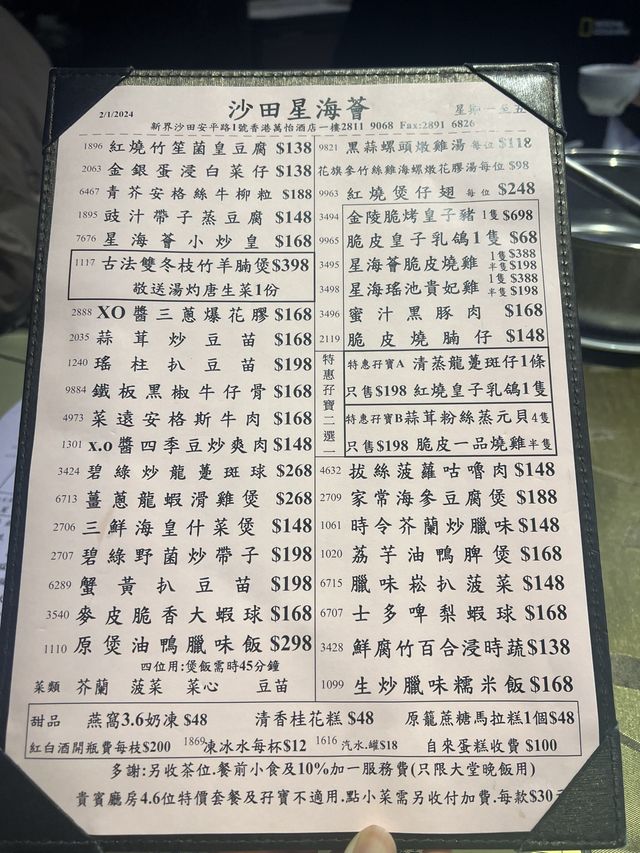 NATIONAL GEOGRAPHIC
2/1/2024
沙田星海薈
星期一至五
新界沙田安平路1號香港萬怡酒店一樓2811 9068 Fax:2891 6826
1896 紅燒竹笙菌皇豆腐 $138
2063 金銀蛋浸白菜仔 $138
6467 青芥安格絲牛柳粒 $188
1895 豉汁帶子蒸豆腐 $148
7676 星海薈小炒皇 $168
1117 古法雙冬枝竹羊腩煲 $398
敬送湯灼唐生菜1份
2888 XO醬三蔥爆花膠 $168
2035 蒜茸炒豆苗 $168
1240 瑤柱扒豆苗 $198
9884 鐵板黑椒牛仔骨 $168
4973 菜遠安格斯牛肉 $168
1301 x.o醬四季豆炒爽肉 $148
3424 碧綠炒龍躉斑球 $268
6713 薑蔥龍蝦滑雞煲 $268
2706 三鮮海皇什菜煲 $148
2707 碧綠野菌炒帶子 $198
6289 蟹黃扒豆苗 $198
3540 麥皮脆香大蝦球 $168
1110 原煲油鴨臘味飯 $298
四位用:煲飯需時45分鐘
菜類 芥蘭 菠菜 菜心 豆苗
9821 黑蒜螺頭燉雞湯 每位 $118
花旗參竹絲雞海螺燉花膠湯每位 $98
9963 紅燒煲仔翅 每位 $248
3494 金陵脆烤皇子豬 1隻 $698
9965 脆皮皇子乳鴿 1隻 $68
3495 星海薈脆皮燒雞 1隻 $388 半隻 $198
3498 星海瑤池貴妃雞 1隻 $388 半隻 $198
3496 蜜汁黑豚肉 $168
2119 脆皮燒腩仔 $148
特惠孖寶二選一
特惠孖寶A 清蒸龍躉斑仔1條
只售$198 紅燒皇子乳鴿1隻
特惠孖寶B蒜茸粉絲蒸元貝4隻
只售$198 脆皮一品燒雞半隻
4632 拔絲菠蘿咕嚕肉 $148
2709 家常海參豆腐煲 $188
1061 時令芥蘭炒臘味 $148
1020 荔芋油鴨脾煲 $168
6715 臘味崧扒菠菜 $148
6707 士多啤梨蝦球 $168
3428 鮮腐竹百合浸時蔬 $138
1099 生炒臘味糯米飯 $168
甜品 燕窩3.6奶凍 $48 清香桂花糕 $48 原籠蔗糖馬拉糕1個$48
紅白酒開瓶費每枝$200 1869凍冰水每杯$12 1616 汽水.罐$18 自來蛋糕收費 $100
多謝:另收茶位.餐前小食及10%加一服務費(只限大堂晚飯用)
貴賓廳房4.6位特價套餐及孖寶不適用.點小菜需另收付加費.每款$30元